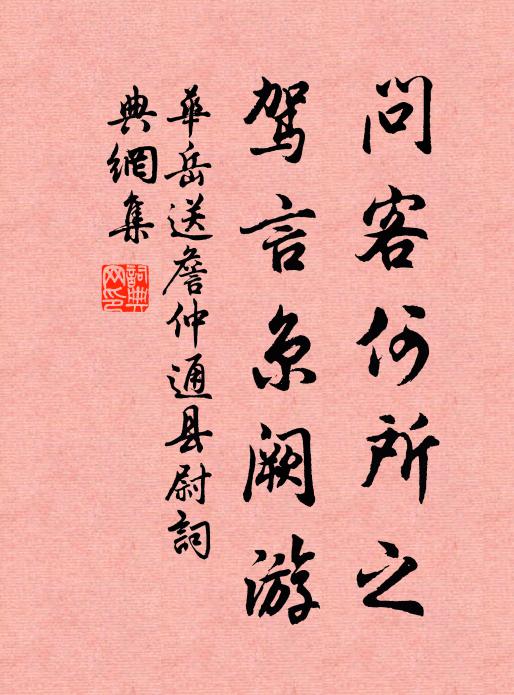 问客何所之
驾言京阙游
華岳送詹仲通县尉詞
典網集
詞典网印